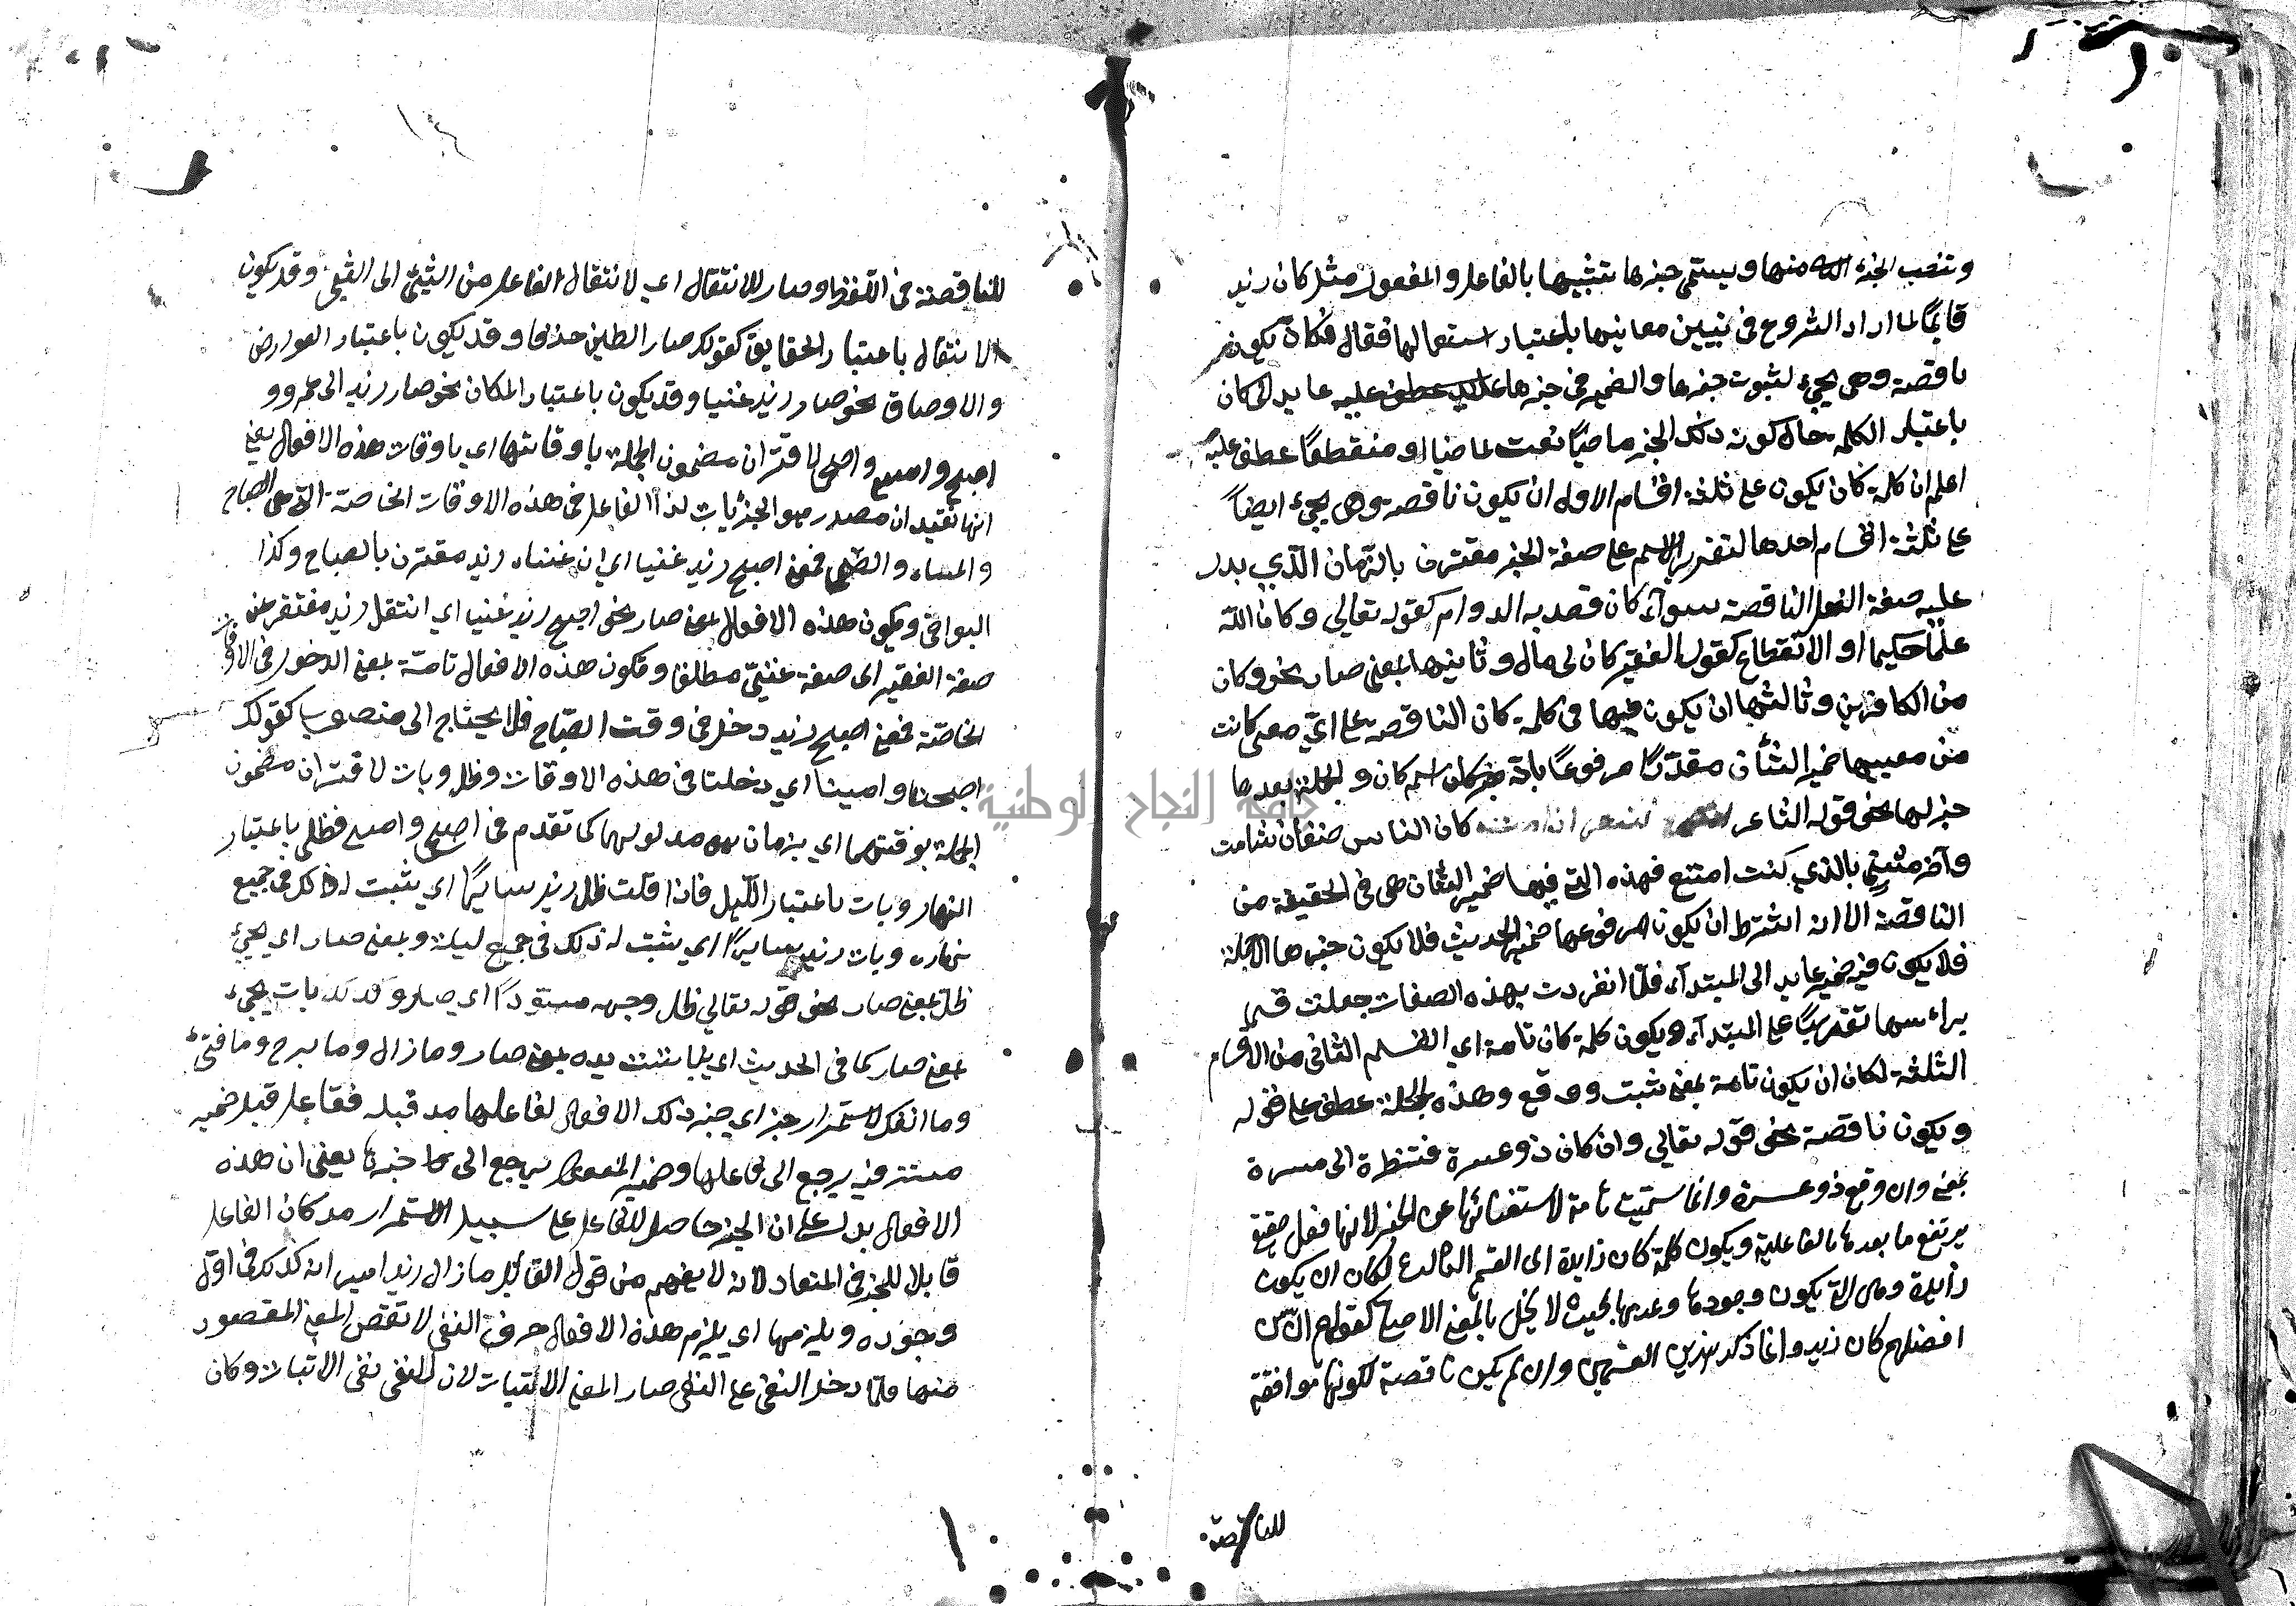 وتنصب الجزء منها ويسمى خبرها تشبيها بالفاعل والمفعول مثل كان زيد
قايمًا لما اراد الشروع في تبيين معانيها باعتبار استعمالها فقال فكان يكون
ناقصة وهي يجيء لثبوت خبرها والضمير في خبرها عايد الى كان
باعتبار الكلمة حال كونه ذلك الخبر ماضيًا نعت لماضيا او منقطعًا عطف عليه
اعلم ان كلمة كان يكون على ثلثة اقسام الاول ان يكون ناقصة وهي يجيء ايضاً
على ثلثة اقسام احدها لتقرير الاسم على صفة الخبر مقترن بالزمان الذي يدل
عليه صفة الفعل الناقصة سوآء كان قصد به الدوام كقوله تعالي وكان الله
عليمًا حكيما او الانقطاع كقول الفقير كان لي مال وثانيها بمعنى صار نحو وكان
من الكافرين وثالثها ان يكون فيها في كلمة كان الناقصة على اي معنى كانت
من معنييها ضمير الشأن مقدّرًا مرفوعًا بانه اسم كان والجملة بعدها
خبر لها نحو قول الشاعر اذا مت كان الناس صنفان شامت
وآخر مثنٍ بالذي كنت اصنع فهذه التي فيها ضمير الشان هي في الحقيقة من
الناقصة الا انه اشترط ان يكون مرفوعها ضمير الحديث فلا يكون خبرها الا جملة
فلا يكون فيه ضمير عايد الى المبتدآء فلمّا انفردت بهذه الصفات جعلت قسما
براءسها تقريبًا على المبتدآء ويكون كلمة كان تامة اي القسم الثاني من الاقسام
الثلثة لكان ان يكون تامة بمعنى ثبت ووقع وهذه الجملة عطف على قوله
ويكون ناقصة نحو قوله تعالي وان كان ذو عسرة فنظرة الى ميسرة
بمعنى وان وقع ذو عسرة وانما سمّيت تامة لاستغنائها عن الخبر لانها فعل حقيقي
يرتفع ما بعدها بالفاعلية ويكون كلمة كان زايدة اي القسم الثالث لكان ان يكون
زايدة وهي التي يكون وجودها وعدمها بحيث لا يخل بالمعنى الاصلي كقولهم ان من
افضلهم كان زيد وانما ذكر هذين القسمين وان لم يكن ناقصة لكونها موافقة
للناقصة
للناقصة في اللفظ وصار للانتقال اي لانتقال الفاعل من الشيئ الى الشيئ وقد يكون
الانتقال باعتبار الحقايق كقولك صار الطين خذفا وقد يكون باعتبار العوارض
والاوصاف نحو صار زيد غنيا وقد يكون باعتبار المكان نحو صار زيد الى عمرو و
اصبح وامسى واضحى لاقتران مضمون الجملة باوقاتها اي باوقات هذه الافعال يعني
انها تفيد ان مصدر هو الجزئيات لذا الفاعل في هذه الاوقات الخاصة التي هي الصباح
والمساء والضحى فمعنى اصبح زيد غنيا اي ان غناء زيد مقترن بالصباح وكذا
البواقي ويكون هذه الافعال بمعنى صار نحو اصبح زيد غنيا اي انتقل زيد مفتقر عن
صفة الفقير اى صفة غنيّ مطلقا وتكون هذه الافعال تامّة بمعنى الدخول في الاوقات
الخاصّة فمعنى اصبح زيد دخل في وقت الصّباح فلا يحتاج الى منصوب كقولك
اصبحنا وامسينا اي دخلنا في هذه الاوقات وظل وبات لاقتران مضمون
الجملة بوقتهما اي بزمان هو مدلولهما كما تقدم في اصبح وامسى فظل باعتبار
النهار وبات باعتبار الليل فاذا قلت ظل زيد سايرًا اي يثبت له ذلك في جميع
نهاره وبات زيد سايرًا اي يثبت له ذلك في جميع ليلة وبمعنى صار اي يجيء
ظل بمعنى صار نحو قوله تعالي ظل وجهه مسودًا اي صار وكذلك بات يجيء
بمعنى صار كما في الحديث اي باتت يده بمعنى صار وما زال وما برح وما فتئ
وما انفك لاستمرار خبر اي خبر ذلك الافعال لفاعلها مد قبله ففاعل قبل ضمير
مستتر فيه يرجع الى فاعلها وضمير المفعول يرجع الى خبرها يعني ان هذه
الافعال يدل على ان الخبر حاصل للفاعل على سبيل الاستمرار مد كان الفاعل
قابلا للخبر في المعتاد لانه لا يفهم من قول القائل ما زال زيد اميرا انه كذلك في اول
وجوده ويلزمها اي يلزم هذه الافعال حرف النفي لانقص المعنى المقصود
منها فلمّا دخل النفي على النفي صار المعنى الاثبات لان للنفي نفي الاثبات وكان
جامعة النجاح الوطنية